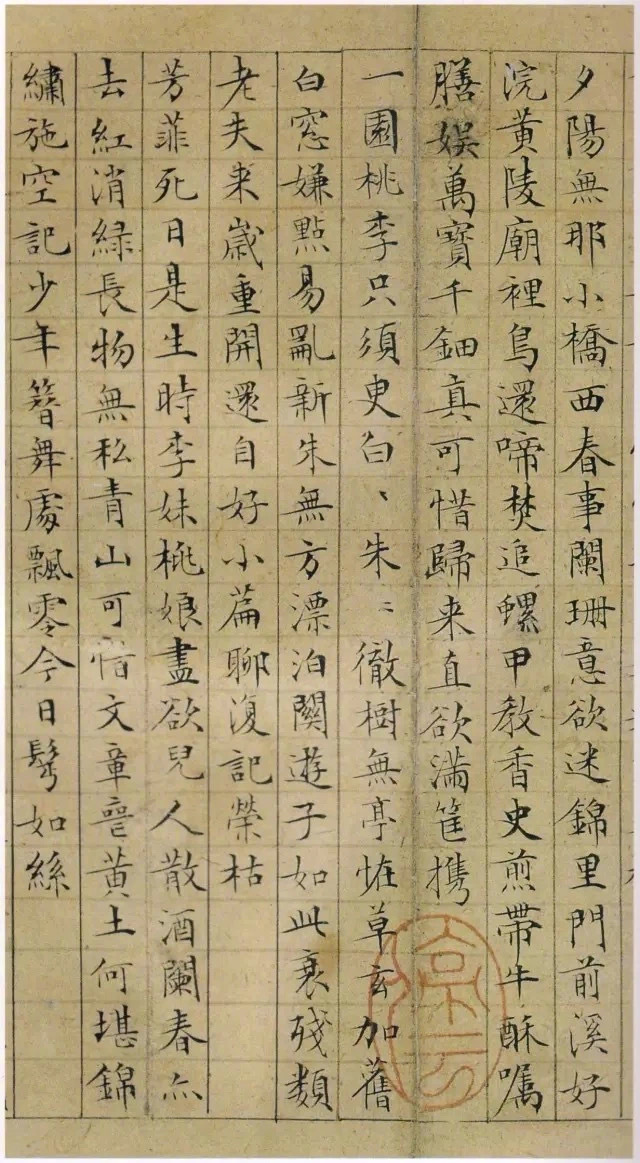 夕陽無那小橋西春事闌珊意欲迷錦里門前溪好
浣黃陵廟裡鳥還啼焚追螺甲教香史煎帶牛酥囑
膳娛萬寶千鈿真可惜歸来直欲滿筐携
一園桃李只須臾白〻朱〻徹樹無亭怪草玄加舊
白窓嫌點易亂新朱無方漂泊關遊子如此衰殘類
老夫来歲重開還自好小篇聊復記榮枯
芳菲死日是生時李妹桃娘盡欲兒人散酒闌春亦
去紅消緑長物無私青山可惜文章喪黃土何堪錦
繡施空記少年簪舞處飄零今日鬂如絲